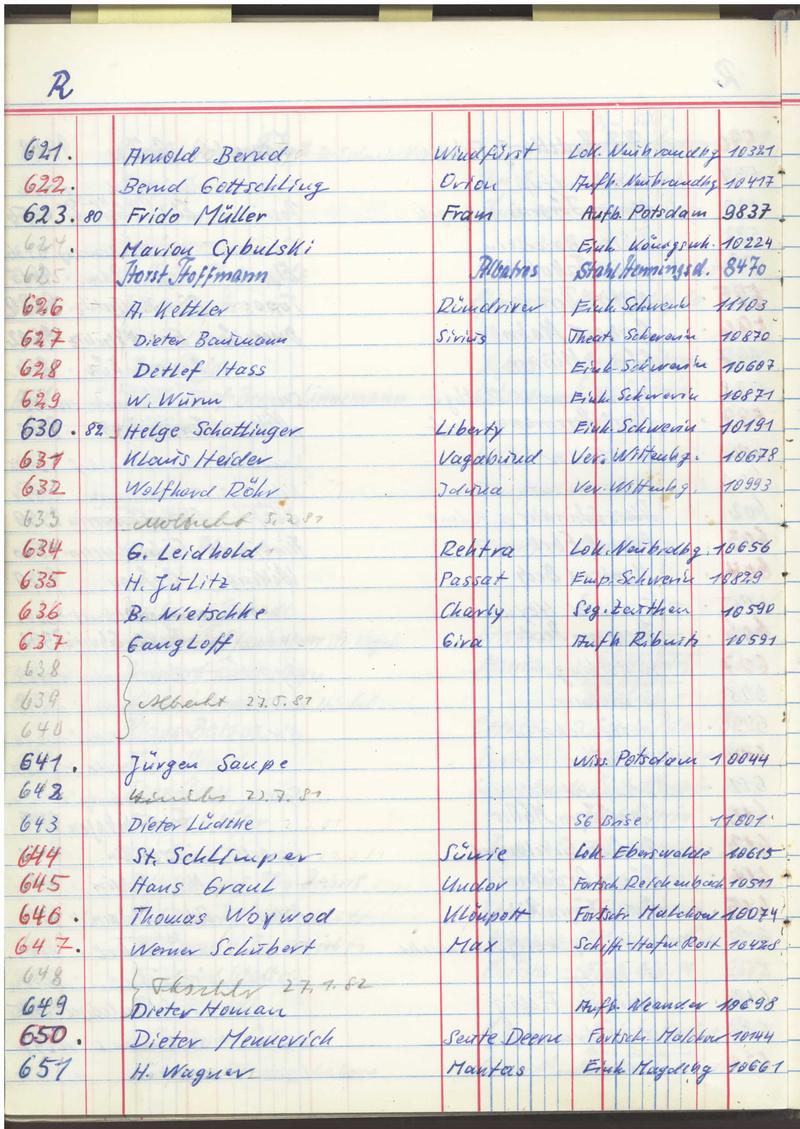 R
621. Arnold Bernd Windfürst Lok. Neubrandbg 10321
622. Bernd Gottschling Orion Aufb. Neubrandbg 10417
623. 80 Frido Müller Fram Aufb. Potsdam 9837
624. Marion Cybulski Einh. Königswh. 10224
625 Horst Hoffmann Albatros Stahl Henningsd. 8470
626 A. Kettler Rumdriver Einh. Schwerin 11103
627 Dieter Baumann Sirius Theat. Schwerin 10870
628 Detlef Hass Einh. Schwerin 10607
629 W. Wurm Einh. Schwerin 10871
630. 82 Helge Schattinger Liberty Einh. Schwerin 10191
631 Klaus Heider Vagabund Ver. Wittenbg. 10678
632 Wolfhard Röhr Iduna Ver. Wittenbg. 10993
633 81
634 G. Leidhold Rehtra Lok. Neubrdbg. 10656
635 H. Julitz Passat Emp. Schwerin 10829
636 B. Nietschke Charly Seg. Zeuthen 10590
637 Gangloff Gira Aufb. Ribnitz 10591
638
639 Albrecht 27.5.81
640
641. Jürgen Saupe Wiss. Potsdam 10044
642 23.7.81
643 Dieter Lüdtke SG Brise 11801
644 St. Schlimper Sünie Lok. Eberswalde 10615
645 Hans Graul Undor Fortsch. Reichenbach 10511
646. Thomas Woywod Klönpott Fortschr. Malchow 10074
647. Werner Schubert Max Schiff-Hafen Rost 10428
648 27.1.82
649 Dieter Homan Aufb. Neander 10698
650. Dieter Mennerich Seute Deern Fortsch. Malchow 10144
651 H. Wagner Mantas Einh. Magdbg 10661